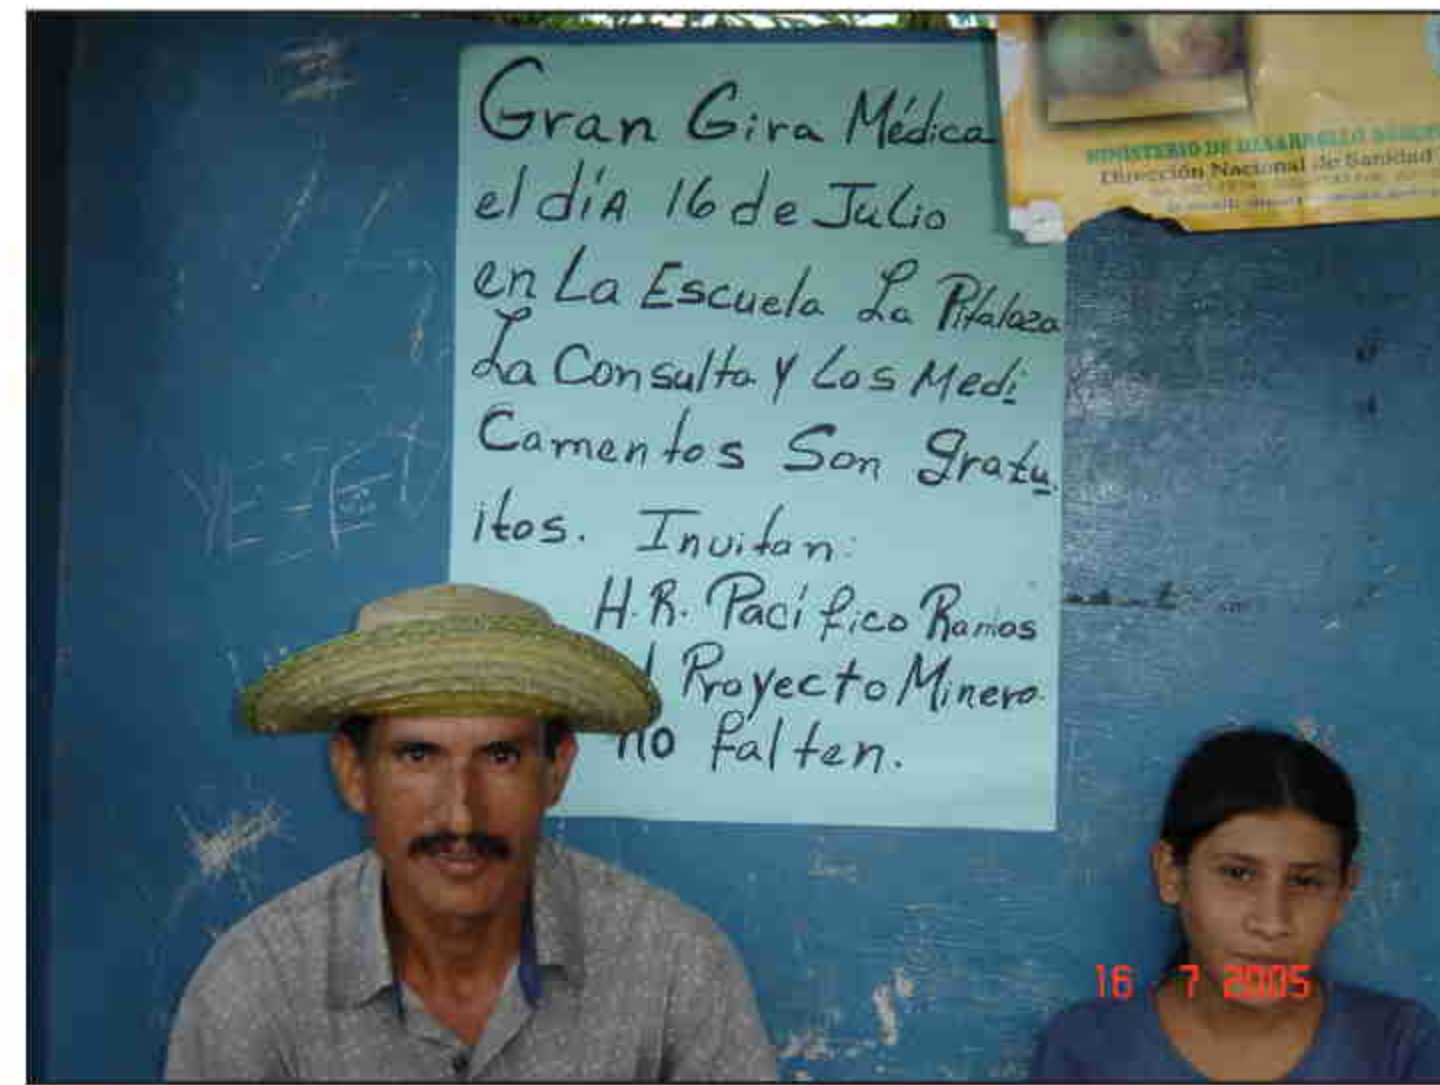 Gran Gira Médica
el día 16 de Julio
en La Escuela La Pitaloza
La Consulta y Los Medi
Camentos Son gratu
itos. Invitan:
H.R. Pacífico Ramos
Proyecto Minero
no falten.
MINISTERIO DE DESARROLLO
Dirección Nacional de Sanidad
YE
16 7 2005